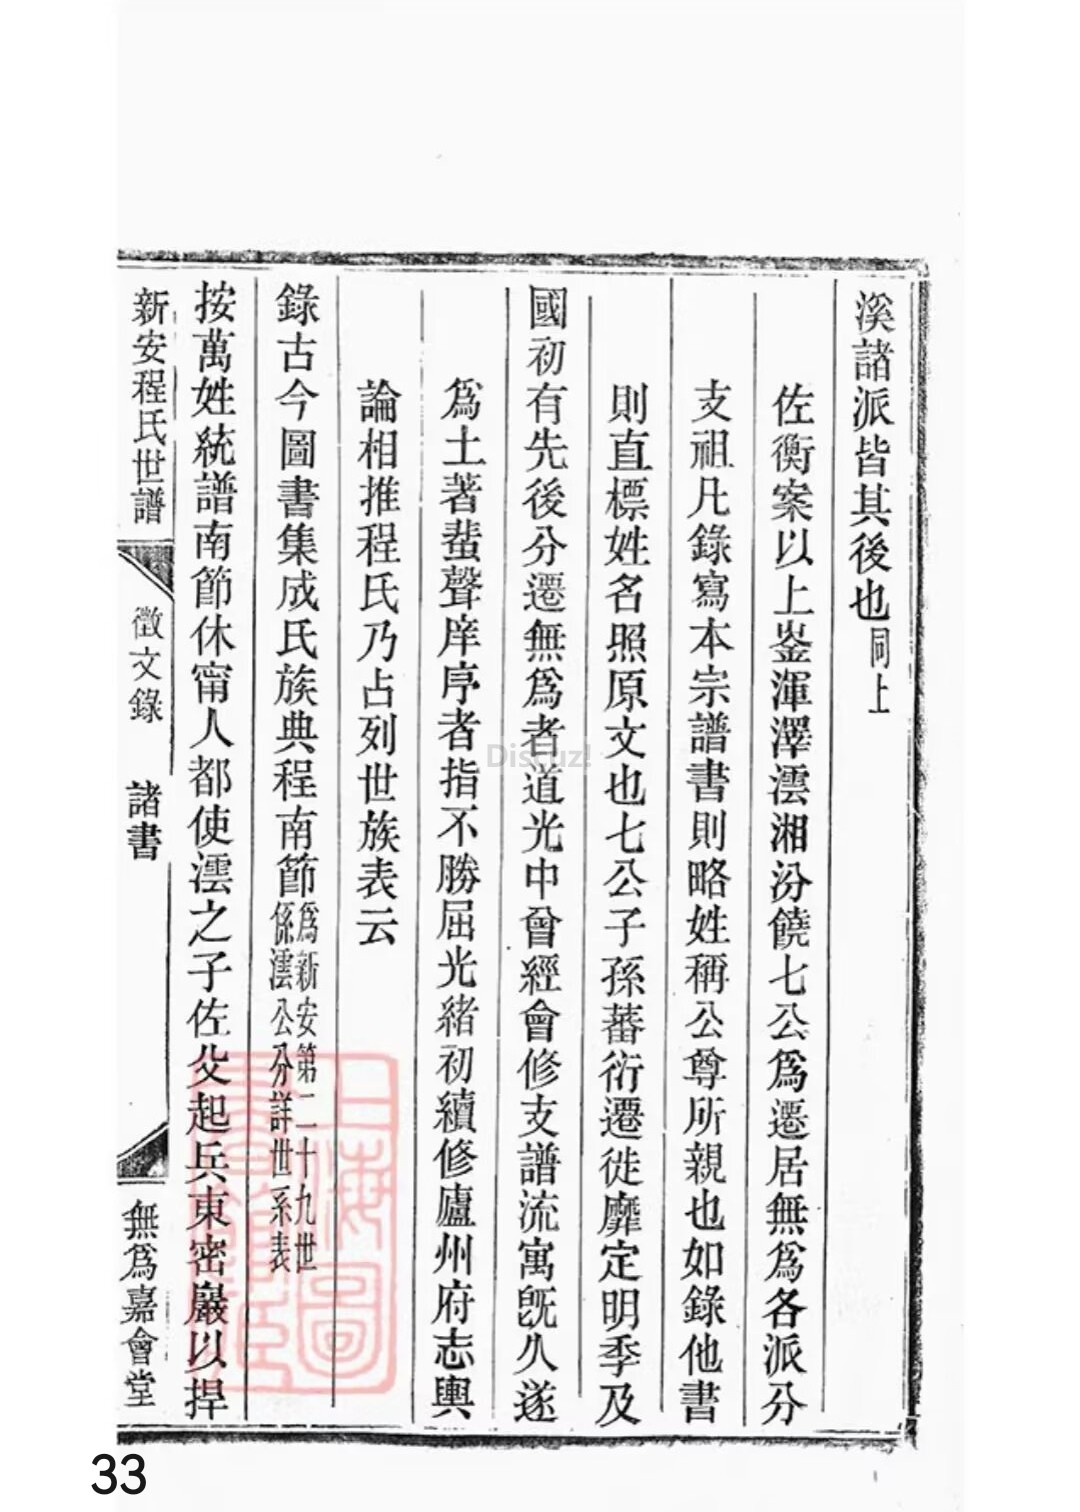 溪諸派皆其後也同上
佐衡案以上崟渾澤澐湘汾饒七公爲遷居無爲各派分
支祖凡錄寫本宗譜書則略姓稱公尊所親也如錄他書
則直標姓名照原文也七公子孫蕃衍遷徙靡定明季及
國初有先後分遷無爲者道光中曾經會修支譜流寓旣久遂
爲土著蜚聲庠序者指不勝屈光緒初續修廬州府志輿
論相推程氏乃占列世族表云
錄古今圖書集成氏族典程南節爲新安第二十九世係澐公分詳世系表
按萬姓統譜南節休甯人都使澐之子佐父起兵東密巖以捍
新安程氏世譜 徵文錄 諸書 無爲嘉會堂
Discuz!
33